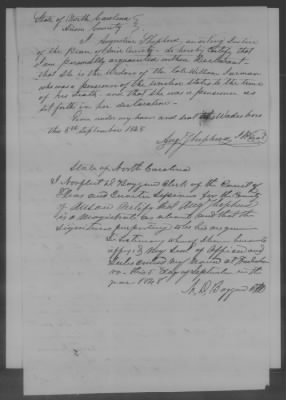 State of North Carolina
Anson County
I Augustus Shepherd, an acting Justice
of the Peace of said County - do hereby Certify that
I am personally acquainted with the declarant -
that she is the Widow of the late William
who was a pensioner of the United States to the time
of his death - and that she was a pensioner as
set forth in her declaration -
Given under my hand and seal at Wadesboro
this 5th September 1848
Aug. Shepherd, J.P. Seal
State of North Carolina
I D. Boggan Clerk of the Court of
Pleas and Quarter Sessions for the County
of Anson Certify that Aug. Shepherd
is a Magistrate as above and that the
signature purporting to be his is genuine
In testimony whereof I have hereunto
affixed the Seal of Office and
Subscribed my name at Wadesbo-
ro - this 5 day of September in the
year 1848
N. D. Boggan Clk